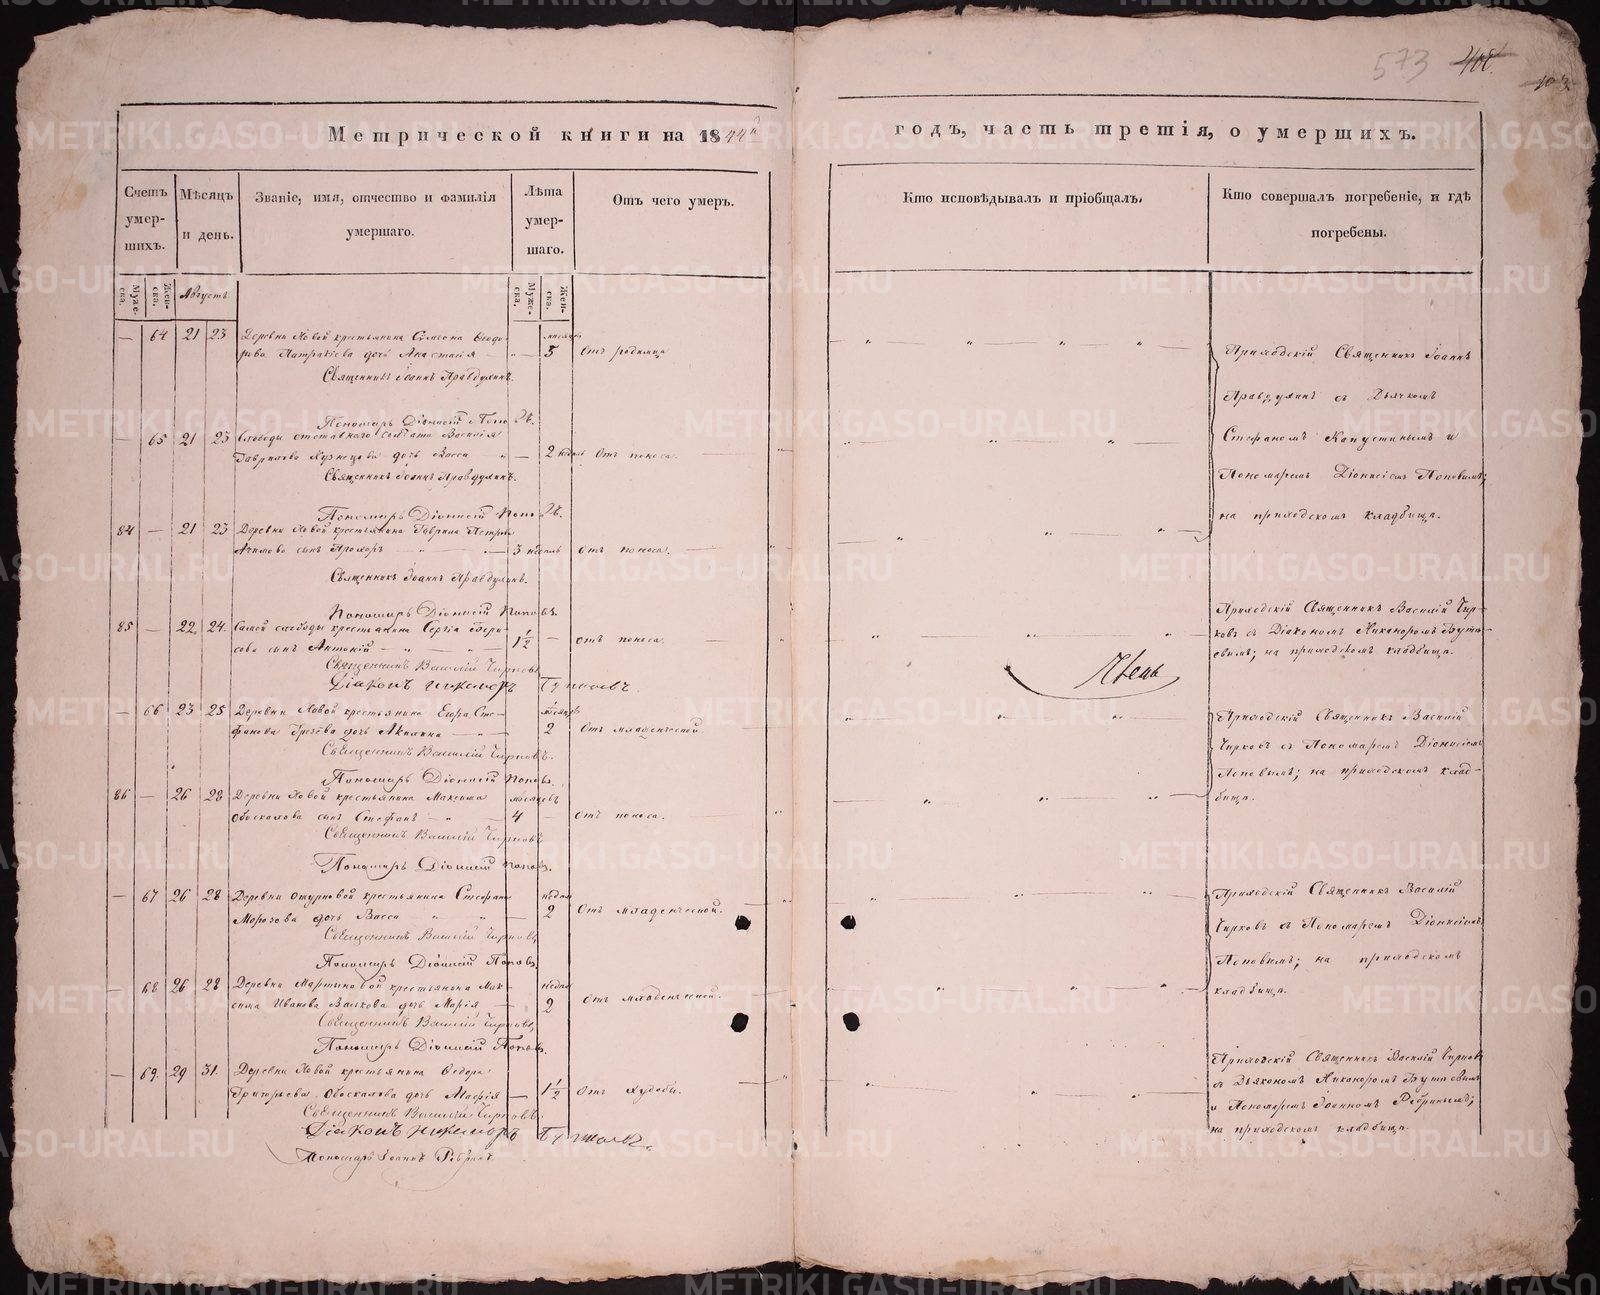 573 408.
103
Метрической книги на 1844й годъ, часть третія, о умершихъ.
Счетъ умер-шихъ.
Мѣсяцъ и день.
Званіе, имя, отчество и фамилія умершаго.
Лѣта умер-шаго.
Отъ чего умеръ.
Кто исповѣдывалъ и пріобщалъ.
Кто совершалъ погребеніе, и гдѣ погребены.
Муже-ска. Жен-ска. Августъ Муже-ска. Жен-ска.
— 64 21 23 Деревни Новой крестьянина Симеона Ѳеодо- мѣсяцовъ
рова дочь Анастасія — 5 Отъ родимца
Священникъ Іоаннъ Правдухинъ.
Пономарь Діонисій Поповъ.
— 65 21 23 Слободы отставнаго солдата Василія
Гаврилова Кузнецова дочь Васса — 2 недѣль Отъ поноса.
Священникъ Іоаннъ Правдухинъ.
Пономарь Діонисій Поповъ.
Приходскій Священникъ Іоаннъ
Правдухинъ съ Дьячкомъ
Стефаномъ Капустинымъ и
Пономаремъ Діонисіемъ Поповымъ;
на приходскомъ кладбищѣ.
84 — 21 23 Деревни Новой крестьянина Гаврила Петрова
сынъ Прохоръ — 3 недѣль отъ поноса.
Священникъ Іоаннъ Правдухинъ.
Пономарь Діонисій Поповъ.
85 — 22. 24. Самой слободы крестьянина Сергія Бори-
сова сынъ Антоній — 1½ — отъ поноса.
Священникъ Василій Чирковъ
Діаконъ Никаноръ Бутаевъ.
Приходскій Священникъ Василій Чир-
ковъ съ Діакономъ Никаноромъ Бута-
евымъ; на приходскомъ кладбищѣ.
— 66 23 25 Деревни Новой крестьянина Егора Сте- мѣсяцовъ
фанова дочь Акилина — 2 Отъ младенческой.
Священникъ Василій Чирковъ.
Пономарь Діонисій Поповъ.
86 — 26 28 Деревни Новой крестьянина Максима мѣсяцовъ
Обоскалова сынъ Стефанъ — 4 — отъ поноса.
Священникъ Василій Чирковъ
Пономарь Діонисій Поповъ.
Приходскій Священникъ Василій
Чирковъ съ Пономаремъ Діонисіемъ
Поповымъ; на приходскомъ клад-
бищѣ.
— 67 26 28 Деревни крестьянина Стефана недѣль
Морозова дочь Васса — 2 Отъ младенческой.
Священникъ Василій Чирковъ,
Пономарь Діонисій Поповъ,
— 68 26 28 Деревни Мартыновой крестьянина Мак- недѣль
сима Иванова Волкова дочь Марія — 2 отъ младенческой.
Священникъ Василій Чирковъ,
Пономарь Діонисій Поповъ.
Приходскій Священникъ Василій
Чирковъ съ Пономаремъ Діонисіемъ
Поповымъ; на приходскомъ
кладбищѣ.
— 69. 29 31. Деревни Новой крестьянина Ѳедора
Григорьева Обоскалова дочь Марѳія — 1½ Отъ худобы.
Священникъ Василій Чирковъ.
Діаконъ Никаноръ Бутаевъ.
Пономарь Іоаннъ Рябининъ.
Приходскій Священникъ Василій Чирковъ
съ Діакономъ Никаноромъ Бутаевымъ
и Пономаремъ Іоанномъ Рябининымъ;
на приходскомъ кладбищѣ.
METRIKI.GASO-URAL.RU